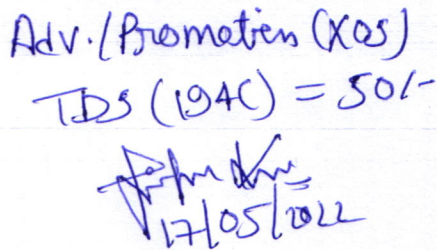 Adv./Promotien (XOS)
TDS (194C) = 50/-
17/05/2022